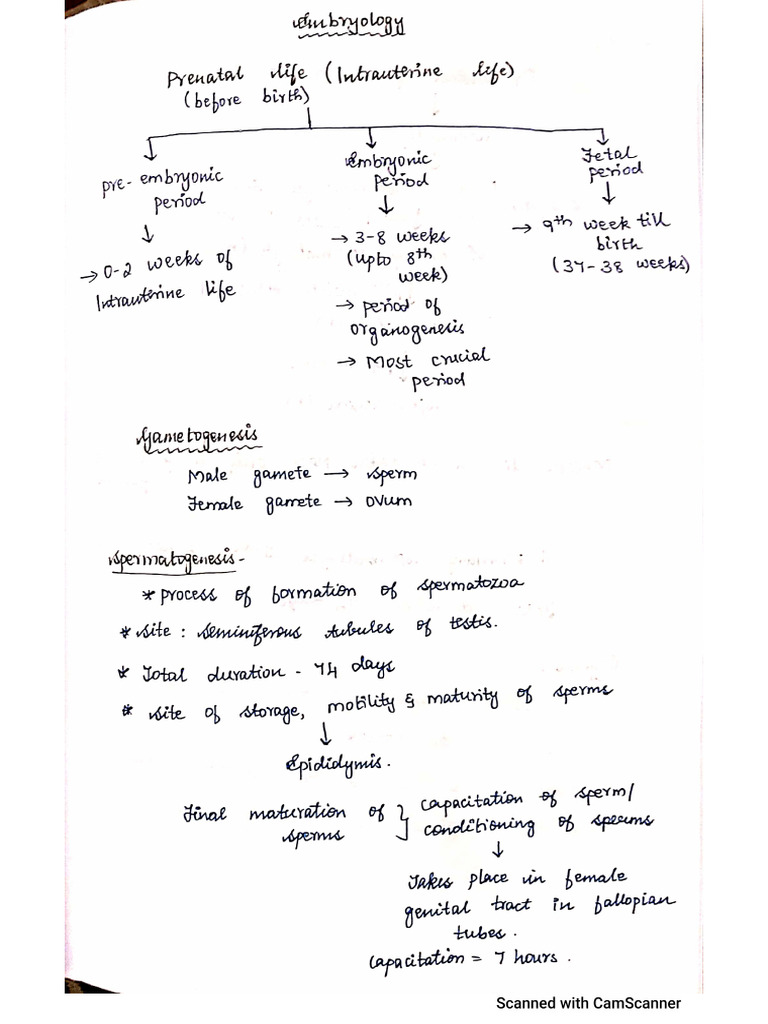 Embryology
Prenatal life (Intrauterine life)
(before birth)
pre-embryonic
period
→ 0-2 weeks of
Intrauterine life
Embryonic
period
→ 3-8 weeks
(upto 8th
week)
→ period of
organogenesis
→ Most crucial
period
Fetal
period
→ 9th week till
birth
(37-38 weeks)
Gametogenesis
Male gamete → sperm
Female gamete → ovum
Spermatogenesis-
* process of formation of spermatozoa
* site : seminiferous tubules of testis.
* Total duration - 74 days
* site of storage, motility & maturity of sperms
↓
Epididymis.
Final maturation of } capacitation of sperm/
sperms } conditioning of sperms
↓
Takes place in female
genital tract in fallopian
tubes.
capacitation = 7 hours.
Scanned with CamScanner